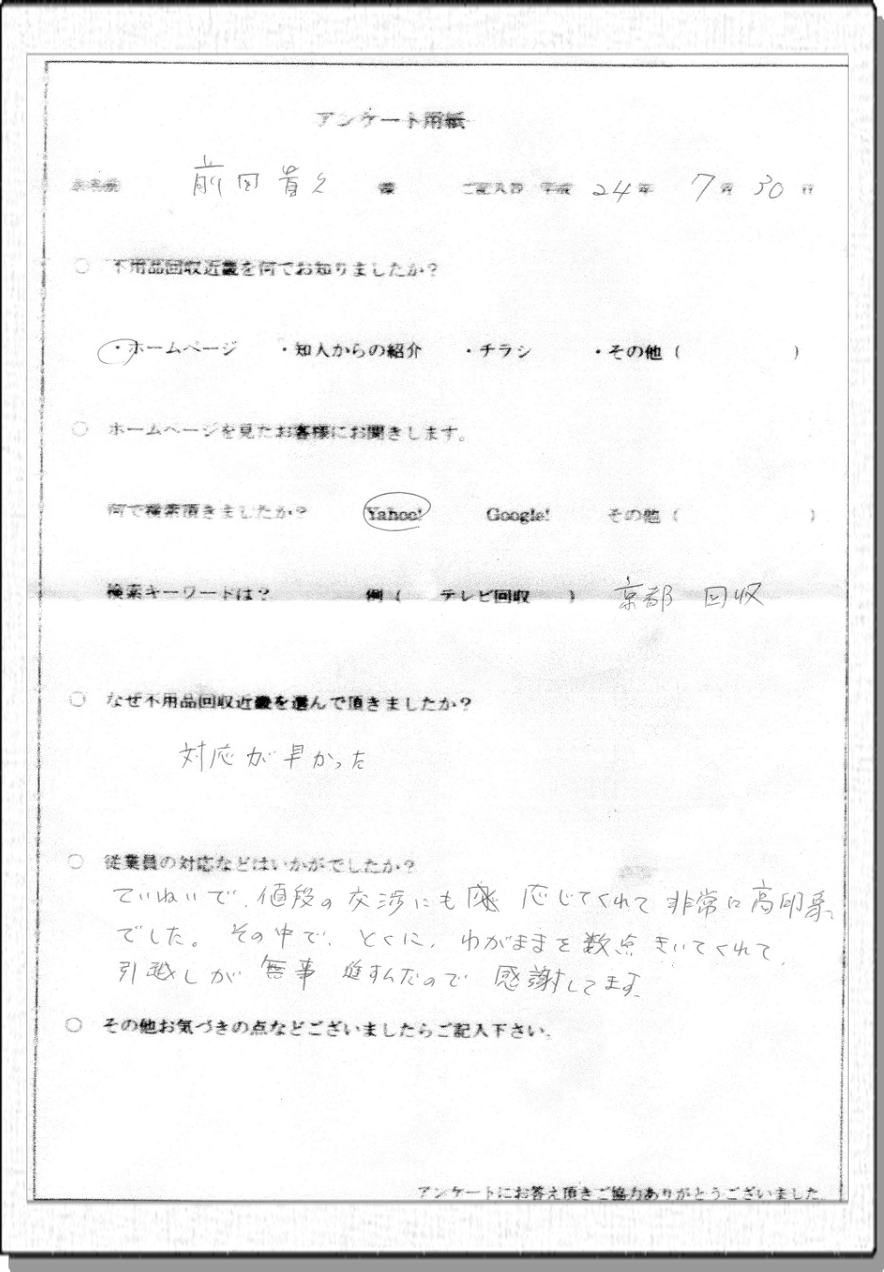 アンケート用紙
お名前 前田貴久 様 ご記入日 平成 24年 7月 30日
○ 不用品回収近畿を何でお知りましたか?
・ホームページ ・知人からの紹介 ・チラシ ・その他 ( )
○ ホームページを見たお客様にお聞きします。
何で検索頂きましたか? Yahoo! Google! その他 ( )
検索キーワードは? 例 ( テレビ回収 ) 京都 回収
○ なぜ不用品回収近畿を選んで頂きましたか?
対応が早かった
○ 従業員の対応などはいかがでしたか?
ていねいで、値段の交渉にも 応じてくれて 非常に高印象
でした。その中で、とくに、わがままを数点きいてくれて、
引越しが 無事 進すんだので 感謝してます。
○ その他お気づきの点などございましたらご記入下さい。
アンケートにお答え頂きご協力ありがとうございました。